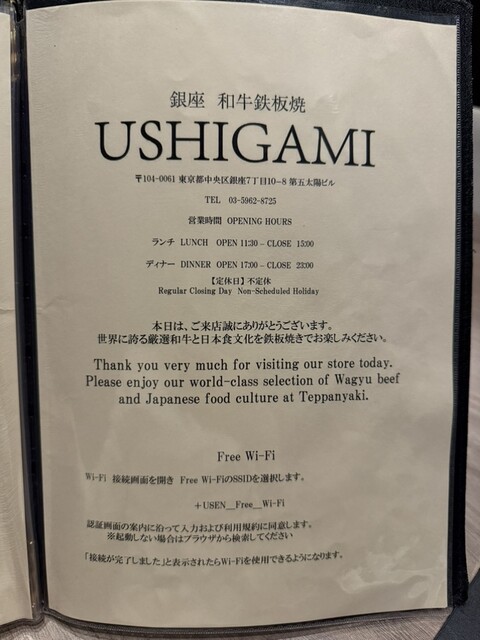 銀座 和牛鉄板焼
USHIGAMI
〒104-0061 東京都中央区銀座7丁目10-8 第五太陽ビル
TEL 03-5962-8725
営業時間 OPENING HOURS
ランチ LUNCH OPEN 11:30 – CLOSE 15:00
ディナー DINNER OPEN 17:00 – CLOSE 23:00
【定休日】不定休
Regular Closing Day Non-Scheduled Holiday
本日は、ご来店誠にありがとうございます。
世界に誇る厳選和牛と日本食文化を鉄板焼きでお楽しみください。
Thank you very much for visiting our store today.
Please enjoy our world-class selection of Wagyu beef
and Japanese food culture at Teppanyaki.
Free Wi-Fi
Wi-Fi 接続画面を開き Free Wi-FiのSSIDを選択します。
+USEN__Free__Wi-Fi
認証画面の案内に沿って入力および利用規約に同意します。
※起動しない場合はブラウザから検索してください
「接続が完了しました」と表示されたらWi-Fiを使用できるようになります。